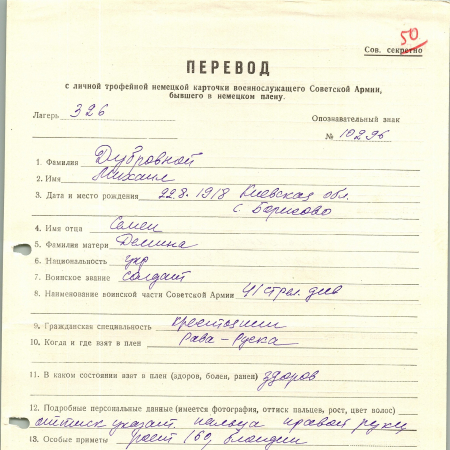 50
Сов. секретно
ПЕРЕВОД
с личной трофейной немецкой карточки военнослужащего Советской Армии,
бывшего в немецком плену.
Лагерь 326 Опознавательный знак
№ 10296
1. Фамилия Дубровной
2. Имя Михаил
3. Дата и место рождения 22.8.1918 Киевская обл.
с. Борисово
4. Имя отца Семен
5. Фамилия матери Демина
6. Национальность укр
7. Воинское звание солдат
8. Наименование воинской части Советской Армии 41 стрел. див
9. Гражданская специальность крестьянин
10. Когда и где взят в плен Рава-Руска
11. В каком состоянии взят в плен (здоров, болен, ранен) здоров
12. Подробные персональные данные (имеется фотография, оттиск пальцев, рост, цвет волос)
оттиск указат. пальца правой руки
13. Особые приметы рост 160, блондин